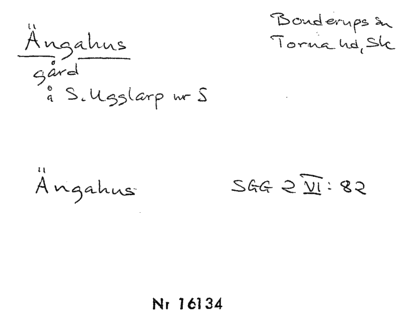 Ängahus
gård
å S. Ugglarp nr 5
Bonderups sn
Torna hd, Sk
Ängahus
SGG 2 VI: 82
Nr 16134